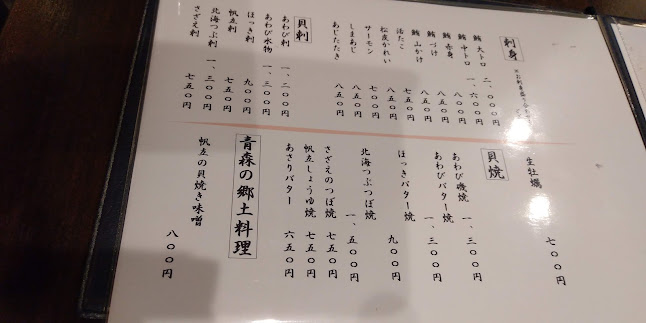 刺身
鮪 大トロ 二、〇〇〇円
鮪 中トロ 一、六〇〇円
鮪 赤身 八五〇円
鮪 づけ 八五〇円
鮪 山かけ 八五〇円
活たこ 八五〇円
松皮かれい 八五〇円
サーモン 七〇〇円
しまあじ 八五〇円
あじたたき 八五〇円
貝刺
あわび刺 一、二〇〇円
あわび水物 一、三〇〇円
ほっき刺 九〇〇円
帆立刺 七五〇円
北海つぶ刺 一、三〇〇円
さざえ刺 七五〇円
生牡蠣 七〇〇円
貝焼
あわび磯焼 一、三〇〇円
あわびバター焼 一、三〇〇円
ほっきバター焼 九〇〇円
北海つぶつぼ焼 一、五〇〇円
さざえのつぼ焼 七五〇円
帆立しょうゆ焼 七五〇円
あさりバター 六五〇円
青森の郷土料理
帆立の貝焼き味噌 八〇〇円